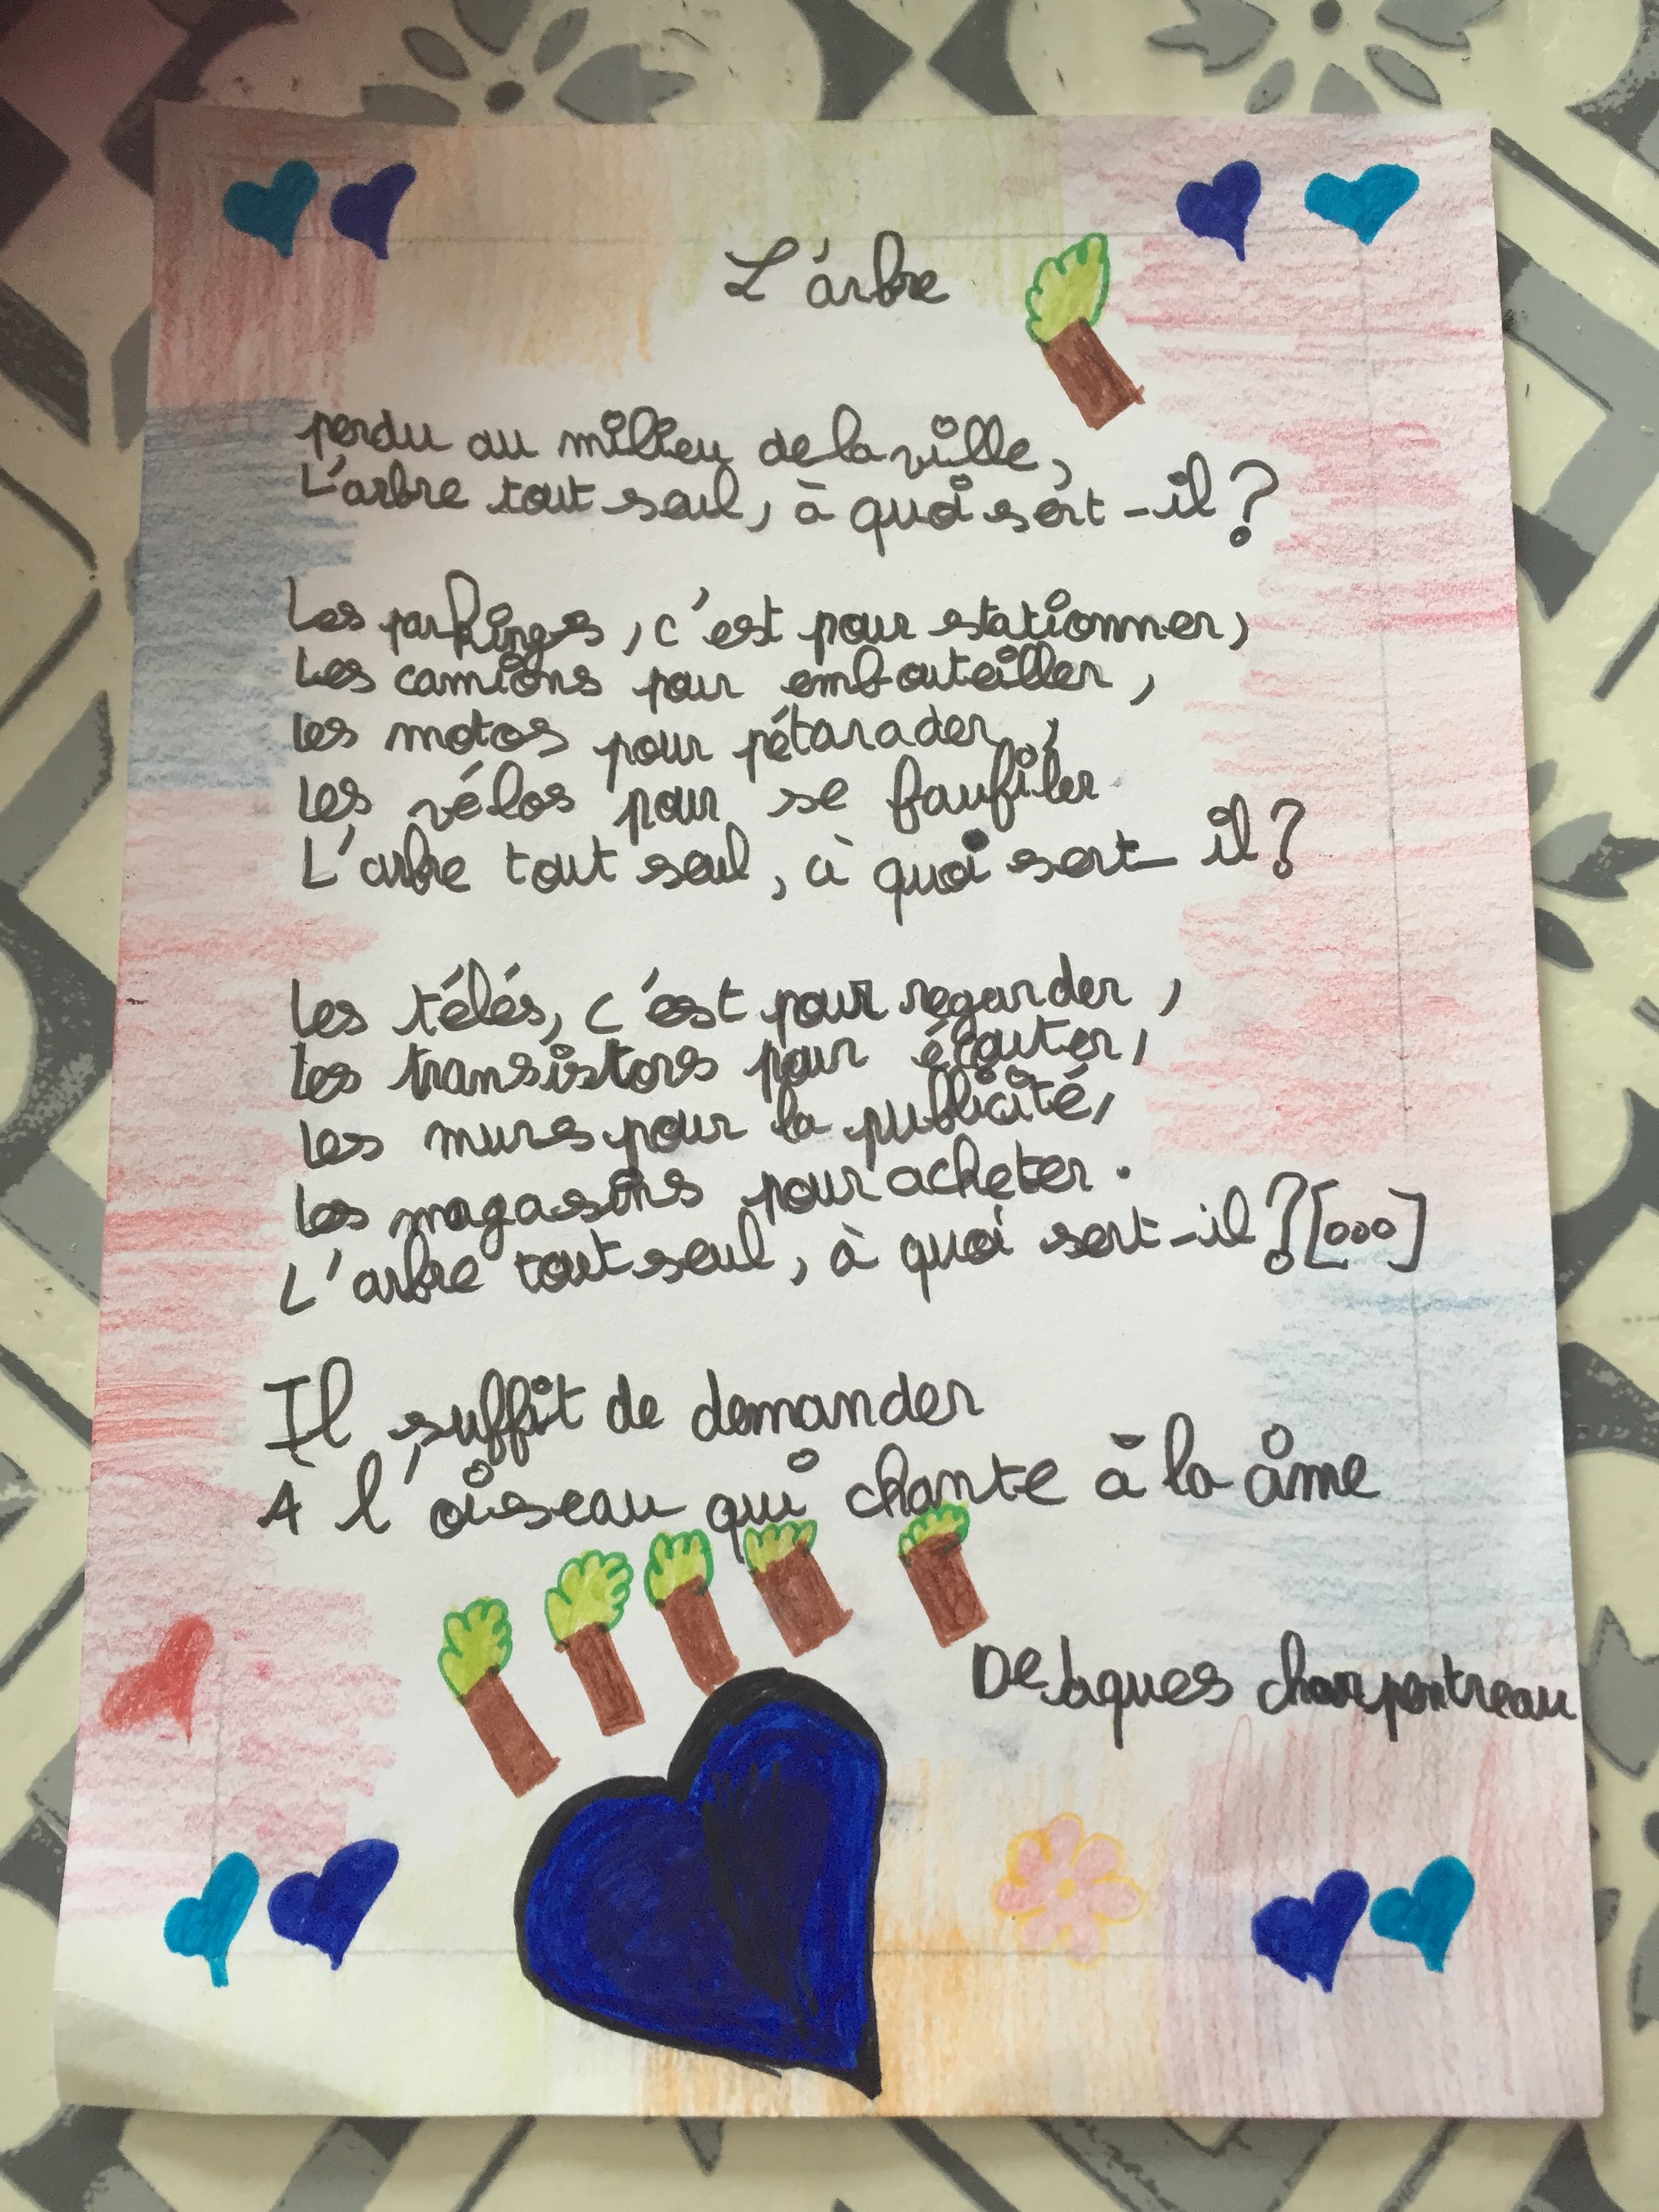 L'arbre
perdu au milieu de la ville,
L'arbre tout seul, à quoi sert-il?
Les parkings, c'est pour stationner,
Les camions pour embouteiller,
Les motos pour pétarader,
Les vélos pour se faufiler
L'arbre tout seul, à quoi sert-il?
Les télés, c'est pour regarder,
Les transistors pour écouter,
Les murs pour la publicité,
Les magasins pour acheter.
L'arbre tout seul, à quoi sert-il?[...]
Il suffit de demander
À l'oiseau qui chante à la âme
De Jaques charpentreau